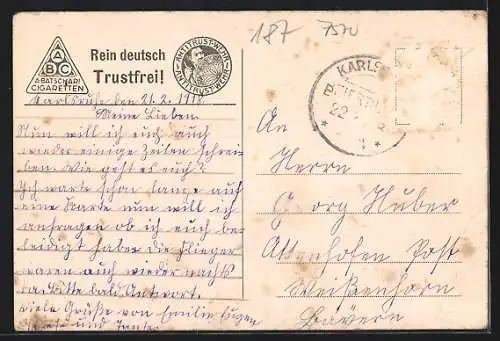 187 7570
ABC
A. BATSCHARI
CIGARETTEN
Rein deutsch
Trustfrei!
ANTITRUST-WEHR
ANTITRUST-WEHR
KARLS
22
* 1 *
Karlsruhe den 21.2. 1918
Meine Lieben.
Nun will ich euch auch
wieder einige Zeilen schrei-
ben. Wie geht es euch?
Ich warte schon lange auf
eine Karte nun will ich
anfragen ob ich euch be-
leidigt habe. Die Flieger
waren auch wieder nachts
da. Bitte bald Antwort.
Viele Grüße von Emilie Eugen
und
An
Herrn
Georg Huber
Attenhofen Post
Weißenhorn
Bayern